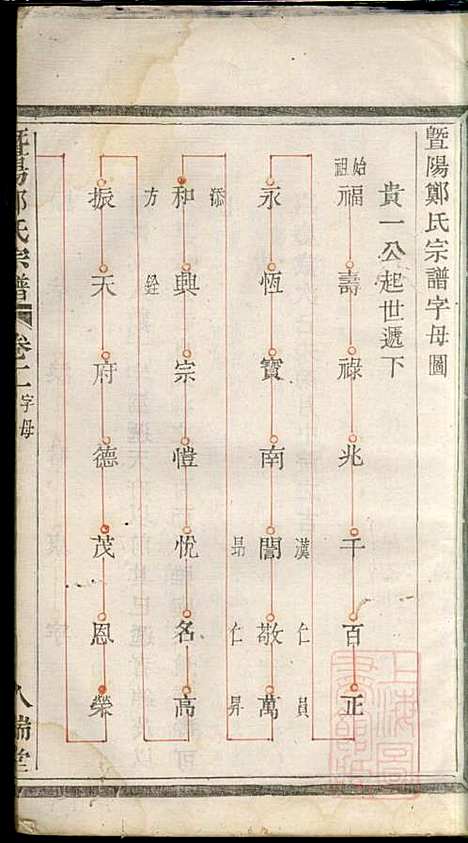 暨陽鄭氏宗譜字母圖
貴一公起世遞下
始祖
福壽祿兆千百正
漢仁員
永恆寶南誾敬萬
昻仁昇
添
和興宗愷悅名高
方銓
振天府德茂恩榮
暨陽鄭氏宗譜
卷二
字母
八端堂